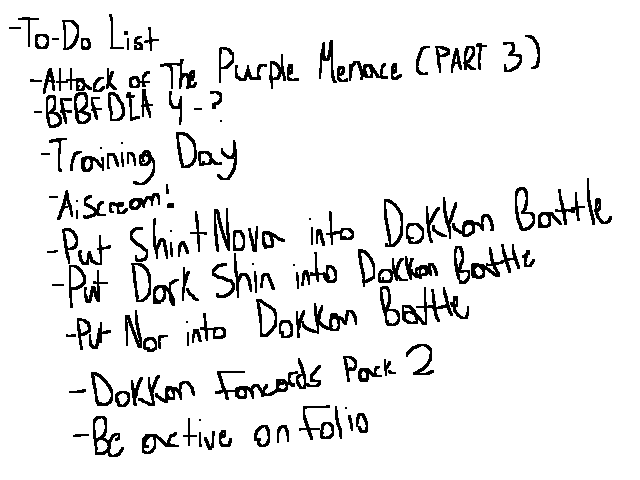 -To-Do List
-Attack of The Purple Menace (PART 3)
-BFBFDIA 4-?
-Training Day
-Aiscream!
-Put Shin+Nova into Dokkan Battle
-Put Dark Shin into Dokkan Battle
-Put Nor into Dokkan Battle
-Dokkan Fancards Pack 2
-Be active on Folio